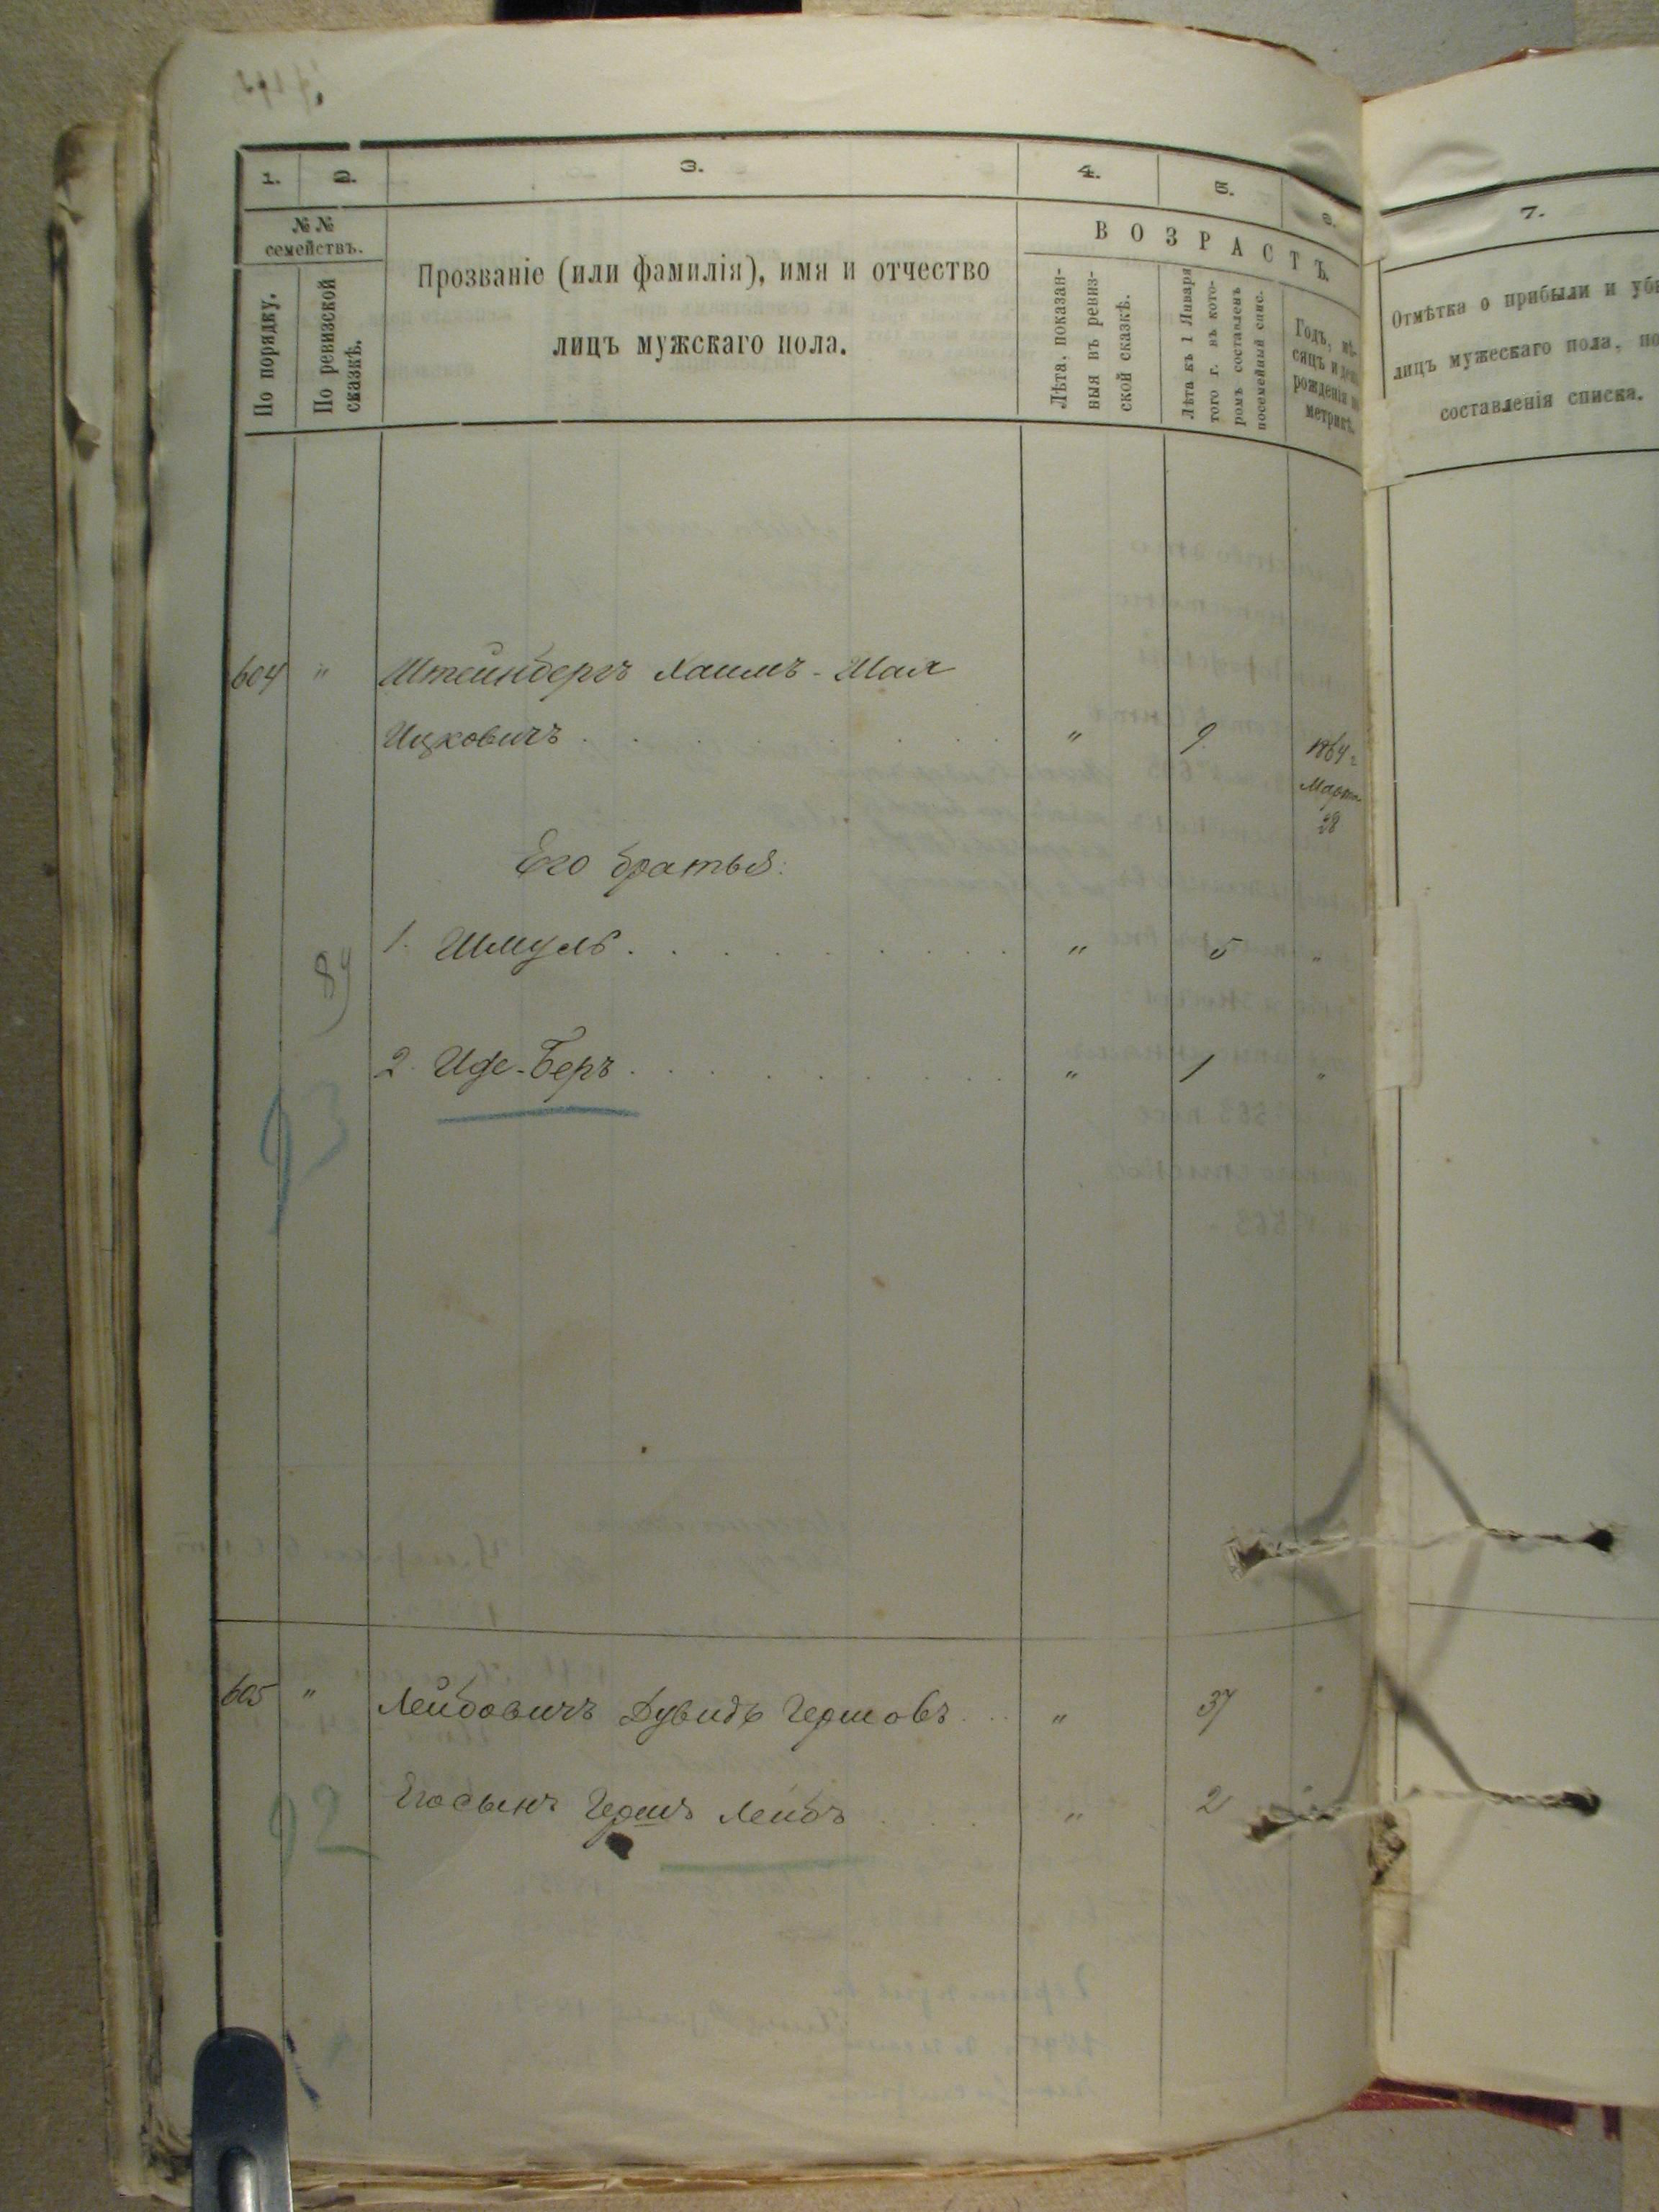 1. 2. 3. 4. 5. 6. 7.
№ № семействъ.
По порядку.
По ревизской сказкѣ.
Прозваніе (или фамилія), имя и отчество
лицъ мужскаго пола.
ВОЗРАСТЪ.
Лѣта, показан-
ныя въ ревиз-
ской сказкѣ.
Лѣта къ 1 Января
того г. въ кото-
ромъ составленъ
посемейный спис.
Годъ, мѣ-
сяцъ и день
рожденія по
метрикѣ.
Отмѣтка о прибыли и убы
лицъ мужескаго пола, по
составленія списка.
604 " Штейнбергъ Хаимъ-Шая
Ицковичъ . . . . . . . . " 9 1864 г
Марта
28
Его братья:
1. Шмуль . . . . . . . . " 5 "
89
2. Иде-Беръ . . . . . . . " 1 "
93
605 " Лейбовичъ Дувидъ Гершовъ . . . " 37 "
Его сынъ Гершъ Лейбъ . . . " 2 "
92